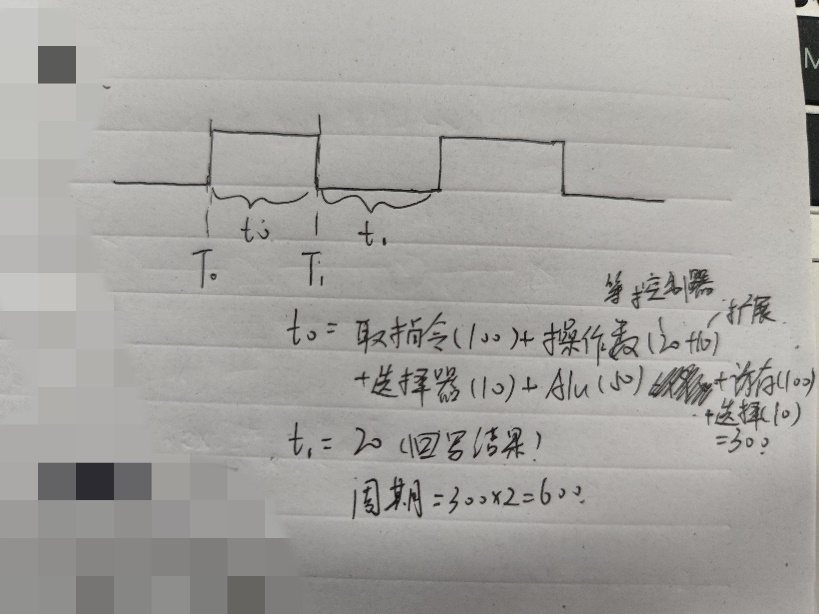 t₀
t₁
T₀
T₁
等控制器
t₀ = 取指令(100)+操作数(20+10) 扩展
+选择器(10)+Alu(50) +访存(100)
+选择(10)
=300.
t₁ = 20 (回写结果)
周期=300×2=600.
M